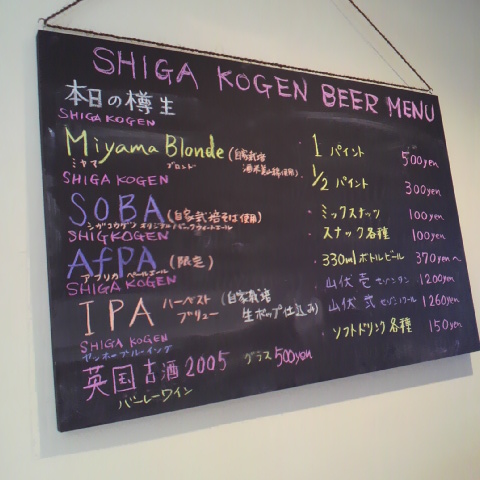 SHIGA KOGEN BEER MENU
本日の樽生
SHIGA KOGEN
Miyama Blonde (自家栽培
ミヤマ ブロンド 酒米美山錦使用)
SHIGA KOGEN
SOBA (自家栽培そば使用)
シガコウゲン オリジナル バックウィートエール
SHIGKOGEN
AfPA (限定)
アフリカ ペールエール
SHIGA KOGEN
IPA ハーベスト (自家栽培
ブリュー 生ホップ仕込み)
SHIGA KOGEN
ヤッホーブルーイング
英国古酒2005 グラス 500yen
バーレーワイン
1 パイント 500yen
1/2 パイント 300yen
・ミックスナッツ 100yen
・スナック各種 100yen
・330mlボトルビール 370yen〜
・山伏壱 セゾンワン 1200yen
・山伏弐 1260yen
・ソフトドリンク各種 150yen